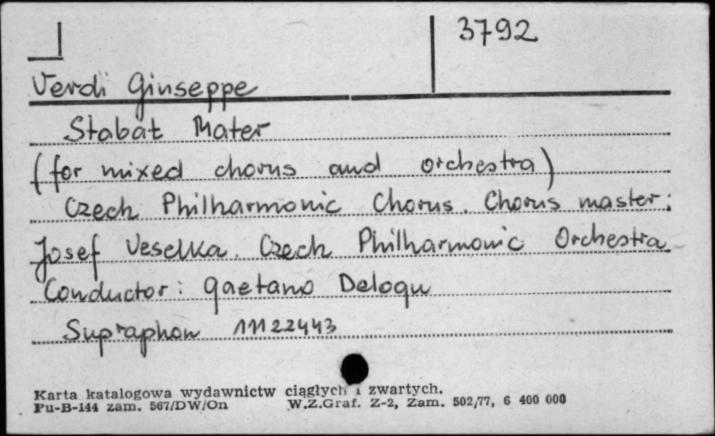 3792
Verdi Giuseppe
Stabat Mater
(for mixed chorus and orchestra)
Czech Philharmonic Chorus. Chorus master:
Josef Veselka. Czech Philharmonic Orchestra
Conductor: Gaetano Delogu
Supraphon 11122443
Karta katalogowa wydawnictw ciągłych i zwartych.
Pu-B-144 zam. 567/DW/On W.Z.Graf. Z-2, Zam. 502/77, 6 400 000